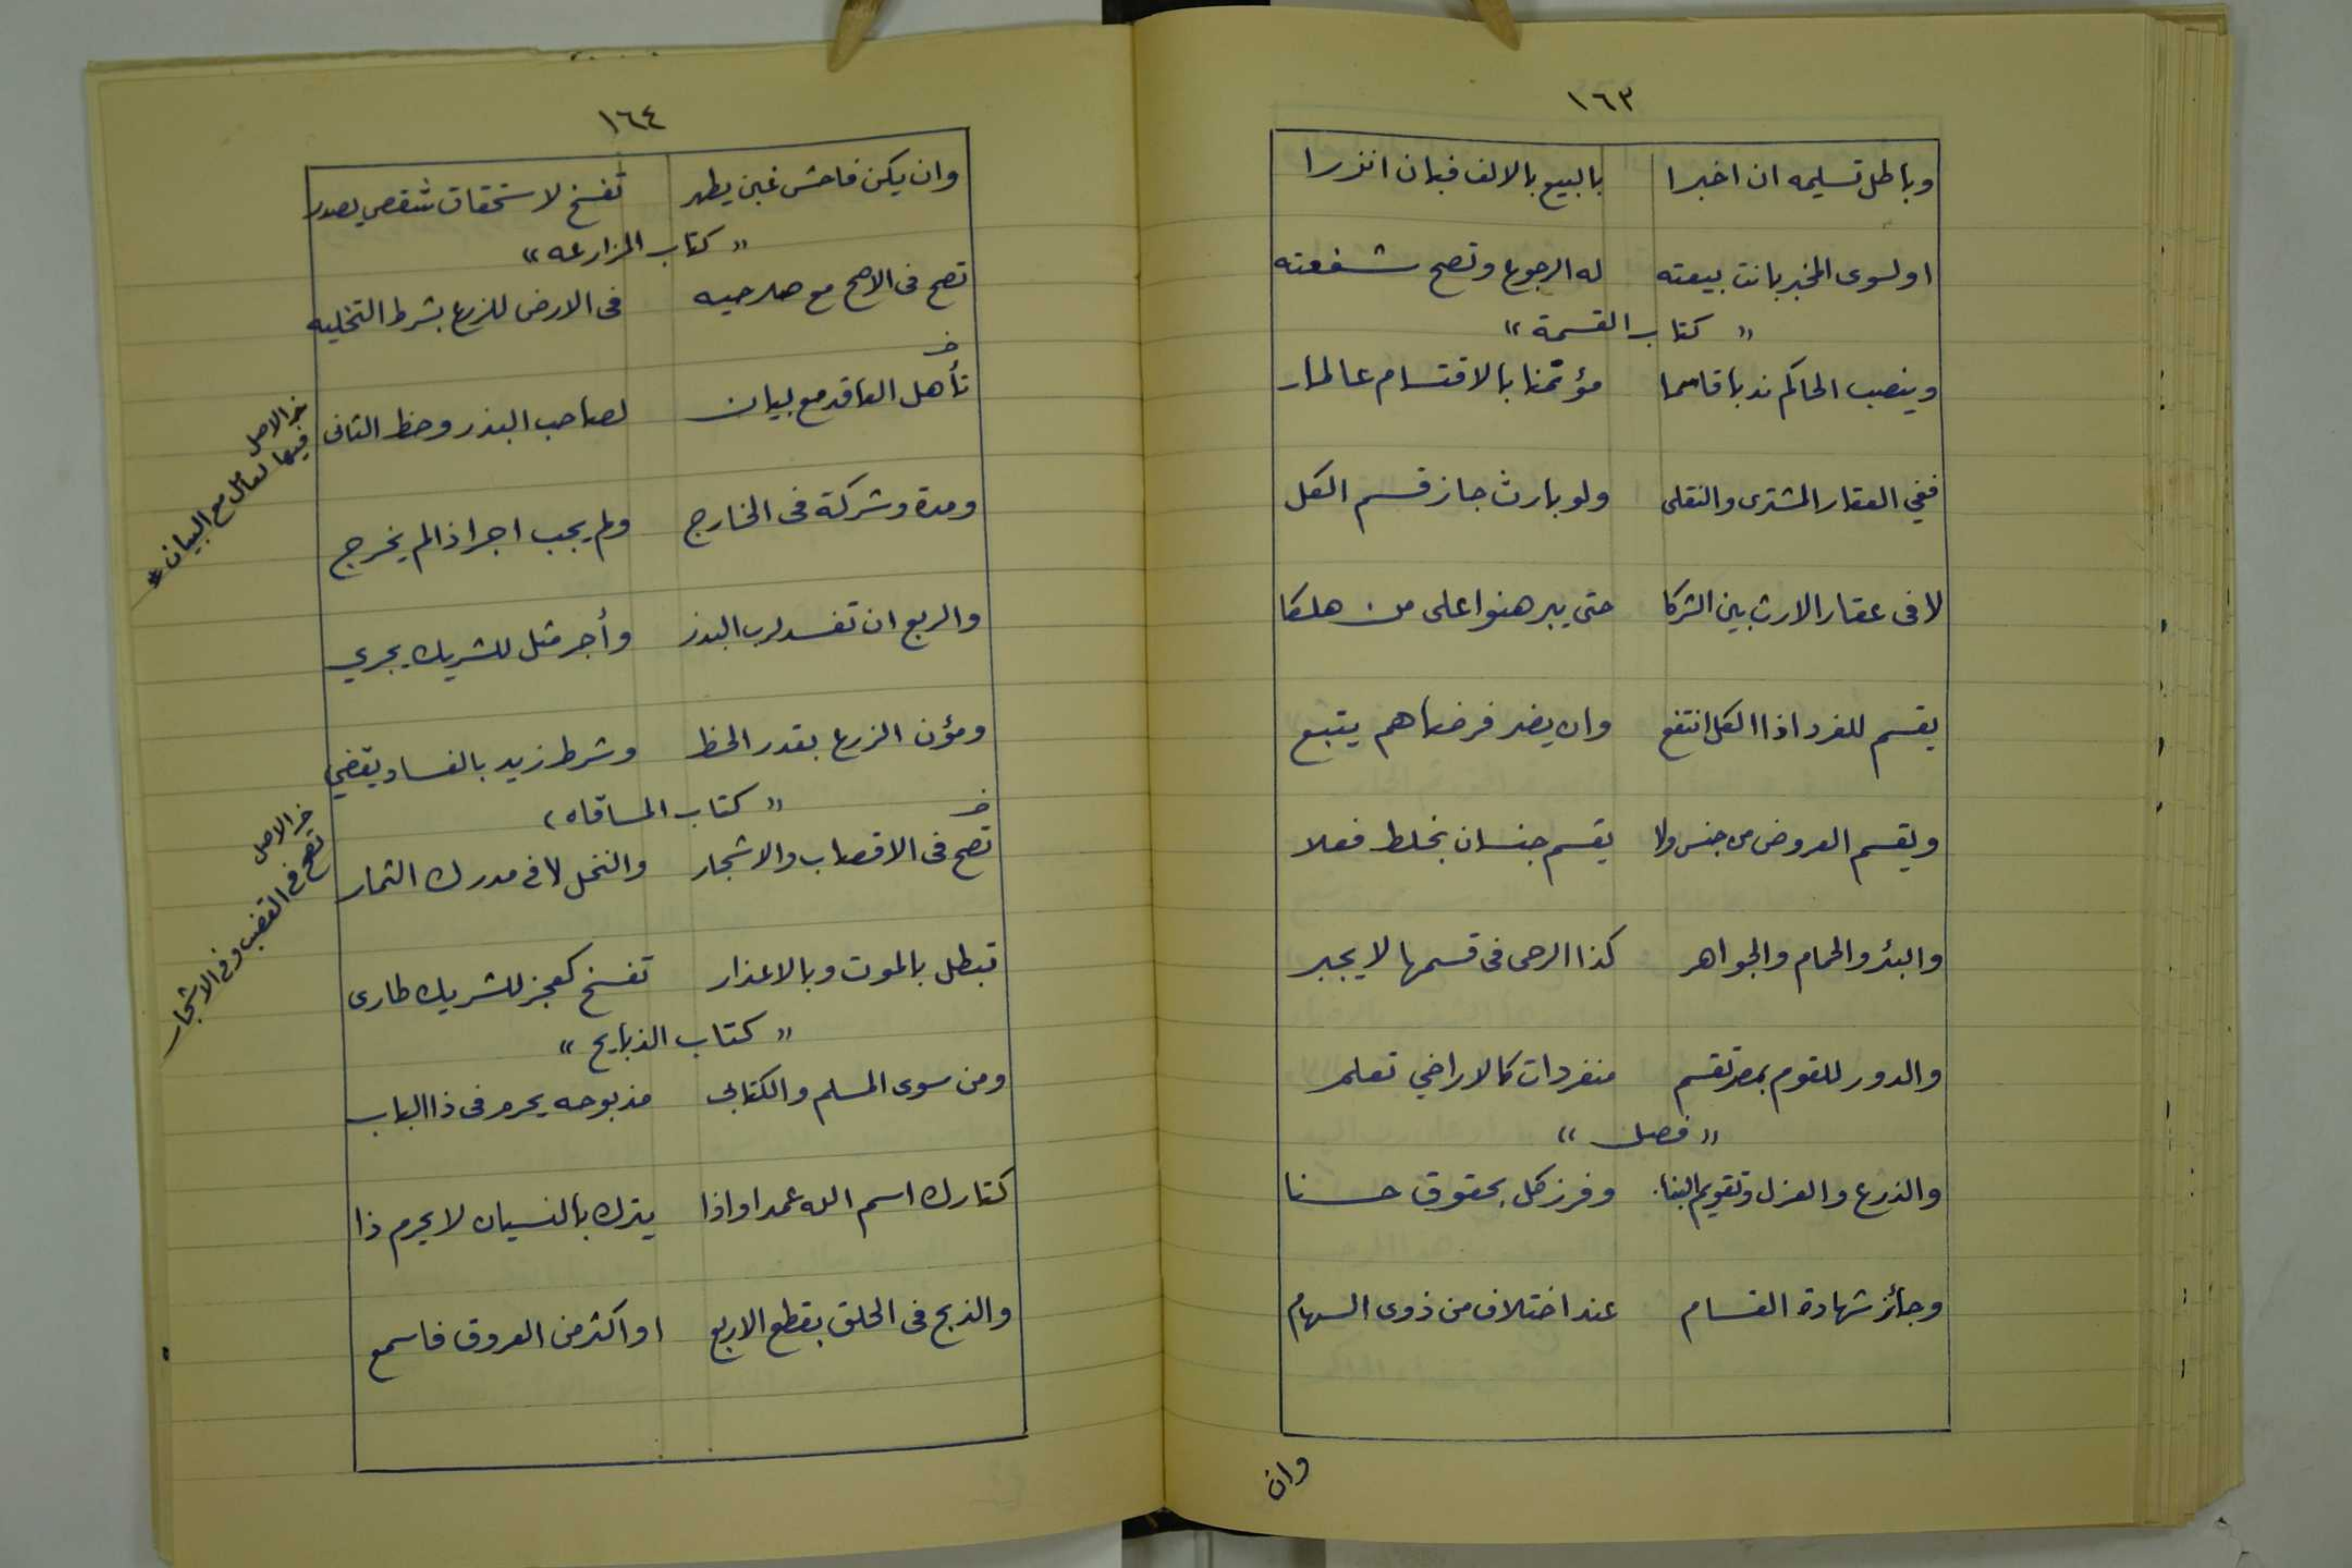 ١٦٣
وباطل تسليمه ان اخبرا بالبيع بالالف فبان انزرا
او لسوى المخبر بانت بيعته له الرجوع وتصح شفعته
" كتاب القسمة "
وينصب الحاكم ندبا قاسما مؤتمنا بالاقتسام عالما
ففي العقار المشترى والنقلى ولو بارث جاز قسم الكل
لا فى عقار الارث بين الشركا حتى يبرهنوا على من هلكا
يقسم للفرد اذا الكل انتفع وان يضر فرضاهم يتبع
ويقسم العروض من جنس ولا يقسم جنسان بخلط فعلا
والبئر والحمام والجواهر كذا الرحى فى قسمها لا يجبر
والدور للقوم بمصر تقسم منفردات كالاراضي تعلم
" فصل "
والذرع والعزل وتقويم البناء وفرز كل بحقوق حسنا
وجائز شهادة القسام عند اختلاف من ذوى السهام
وان
١٦٤
وان يكن فاحش غبن يظهر تفسخ لاستحقاق شقص يصدر
" كتاب المزارعه "
تصح فى الاصح مع صلاحيه فى الارض للزرع بشرط التخليه
خ
تأهل العاقد مع بيان لصاحب البذر وحظ الثانى
ومدة وشركة فى الخارج ولم يجب اجر اذا لم يخرج
والربع ان تفسد لرب البذر وأجر مثل للشريك يجري
ومؤن الزرع بقدر الحظ وشرط زيد بالفساد يقضي
" كتاب المساقاه "
خ
تصح فى الاقصاب والاشجار والنخل لا فى مدرك الثمار
تبطل بالموت وبالاعذار تفسخ كعجز للشريك طارى
" كتاب الذبايح "
ومن سوى المسلم والكتابى مذبوحه يحرم فى ذا الباب
كتارك اسم الله عمدا واذا يترك بالنسيان لا يحرم ذا
والذبح فى الحلق بقطع الاربع او اكثر من العروق فاسمع
خ الاصل
فيها تعامل مع البيان *
خ الاصل
تصح فى القضب وفى الاشجار